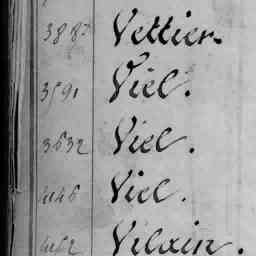 3887 Vettier.
3591 Viel.
3632 Viel.
4146 Viel.
4162 Vilain.